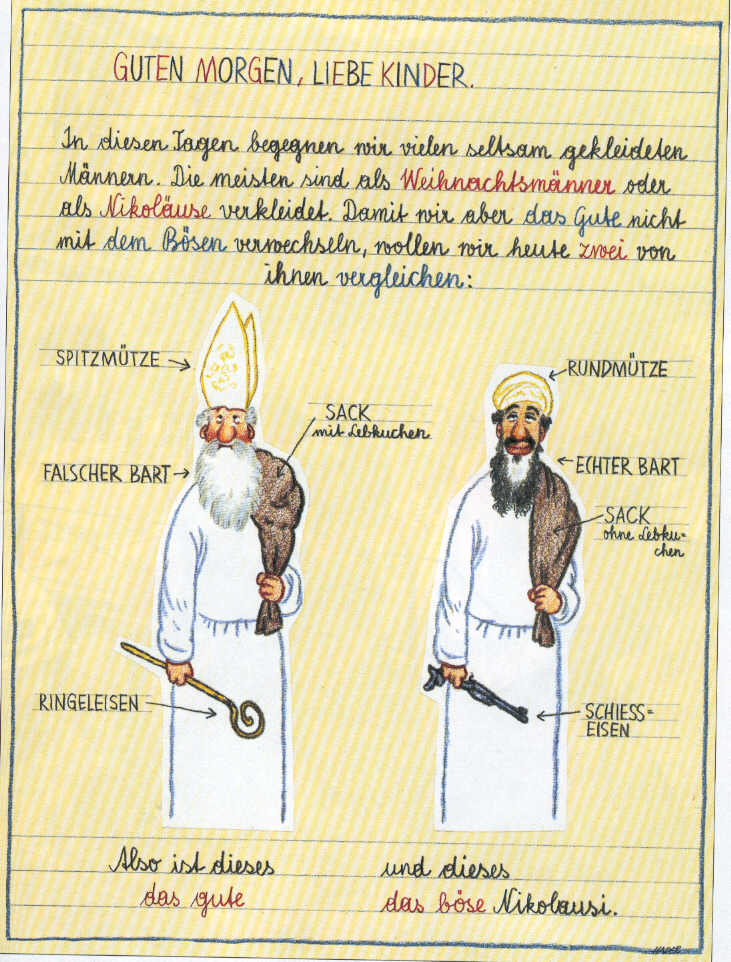 GUTEN MORGEN, LIEBE KINDER.
In diesen Tagen begegnen wir vielen seltsam gekleideten
Männern. Die meisten sind als Weihnachtsmänner oder
als Nikoläuse verkleidet. Damit wir aber das Gute nicht
mit dem Bösen verwechseln, wollen wir heute zwei von
ihnen vergleichen:
SPITZMÜTZE
SACK
mit Lebkuchen
FALSCHER BART
RINGELEISEN
RUNDMÜTZE
ECHTER BART
SACK
ohne Lebku-
chen
SCHIESS=
EISEN
Also ist dieses
das gute
und dieses
das böse Nikolausi.